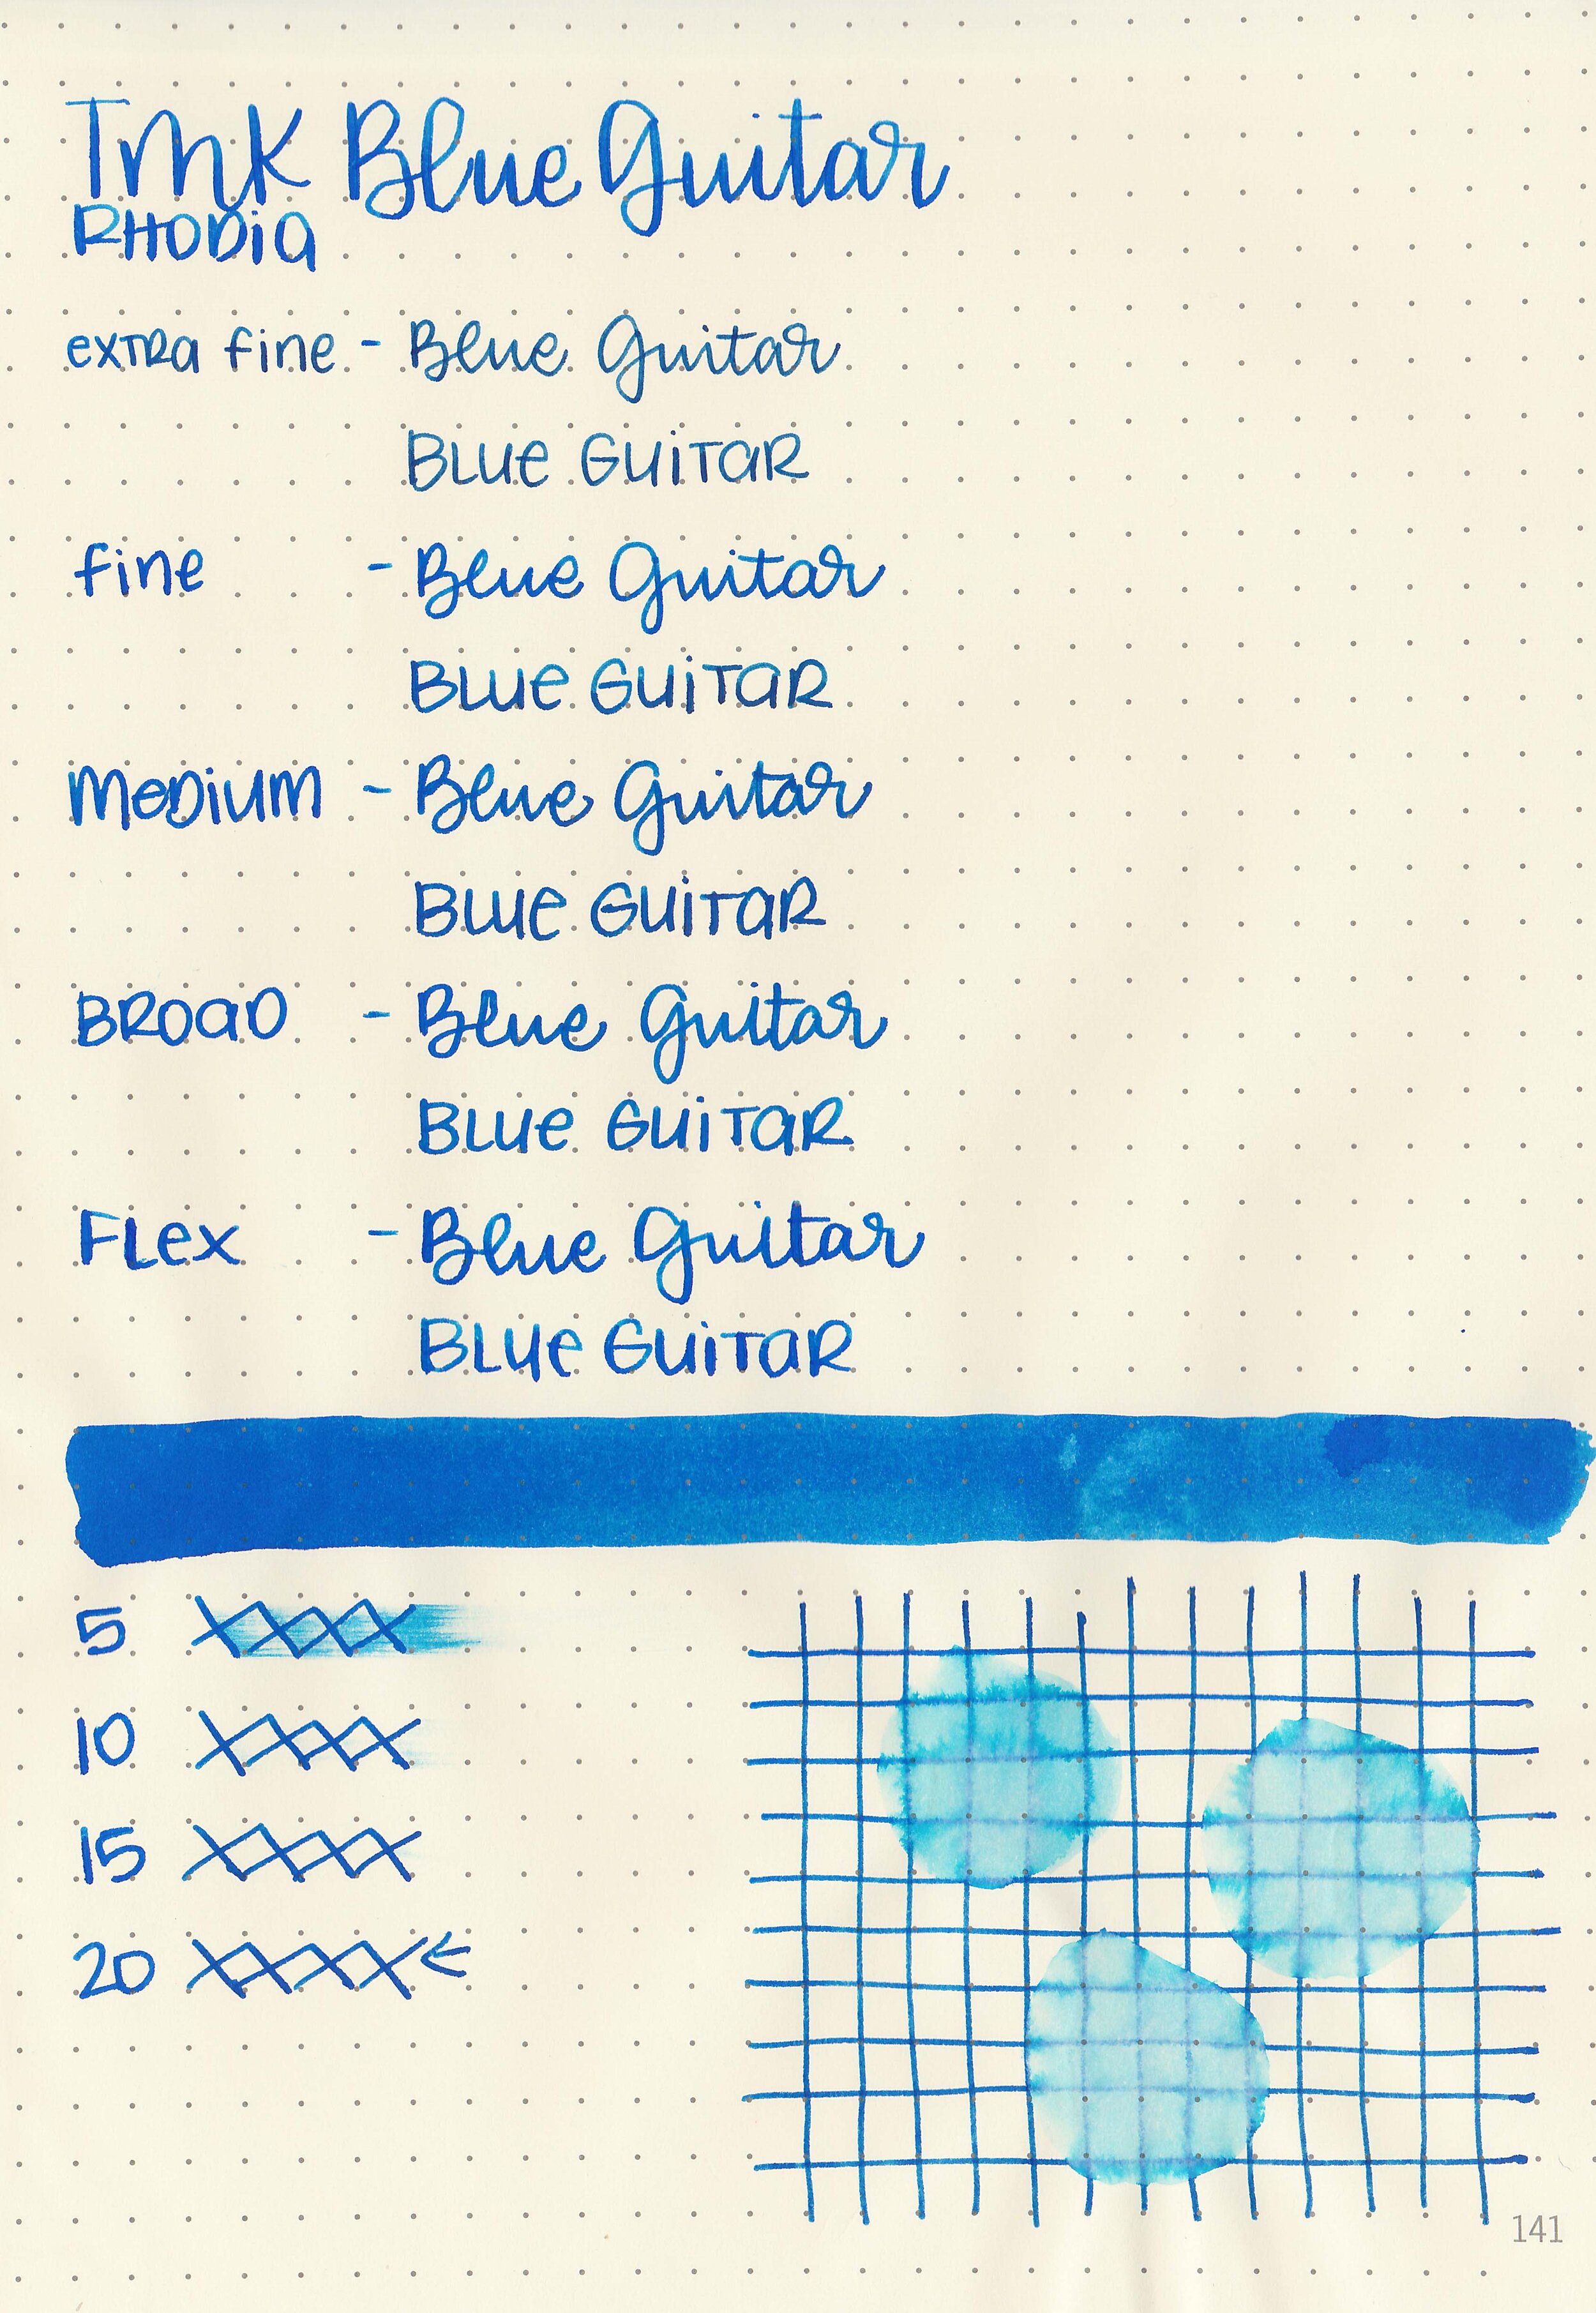 TMK Blue Guitar
RHODIA
extra fine - Blue Guitar
BLUE GUITAR
fine - Blue Guitar
BLUE GUITAR
MEDIUM - Blue Guitar
BLUE GUITAR
BROAD - Blue Guitar
BLUE GUITAR
FLEX - Blue Guitar
BLUE GUITAR
5 XXX
10 XXX
15 XXX
20 XXX ←
141